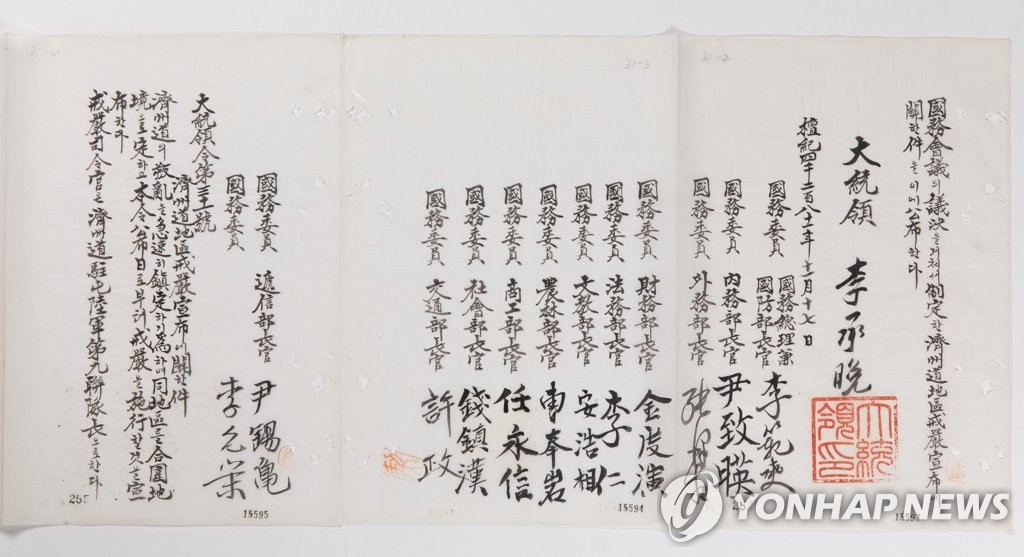 31-2
國務會議의議決을거쳐서制定한濟州道地區戒嚴宣布에
關한件을이에公布한다
大統領 李承晩
大統領印
檀紀四千二百八十一年十一月十七日
國務委員 國務總理兼
國防部長官 李範奭
國務委員 內務部長官 尹致暎
國務委員 外務部長官
31-3
國務委員 財務部長官 金度演
國務委員 法務部長官 李仁
國務委員 文教部長官 安浩相
國務委員 農林部長官 曺奉岩
國務委員 商工部長官 任永信
國務委員 社會部長官 錢鎮漢
國務委員 交通部長官 許政
國務委員 遞信部長官 尹錫亀
國務委員 李允栄
大統領令第三十一號
濟州道地區戒嚴宣布에關한件
濟州道의叛亂을急速히鎮定하기爲하여同地區를合圍地
境으로定하고本令公布日로부터戒嚴을施行할것을宣
布한다
戒嚴司令官은濟州道駐屯陸軍第九聯隊長으로한다
15594
15595
YONHAP NEWS